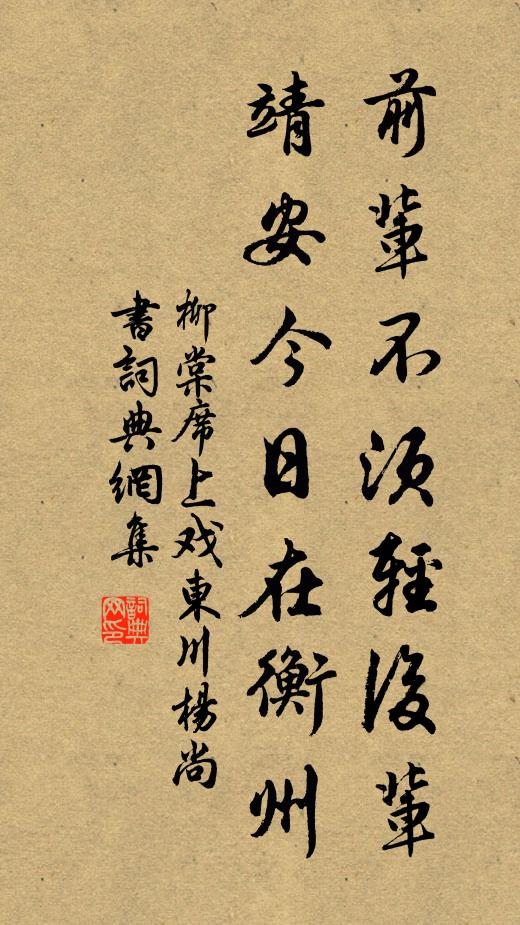 前輩不須輕後輩
靖安今日在衡州
柳棠席上戏東川楊尚
書詞典網集
詞典
网印